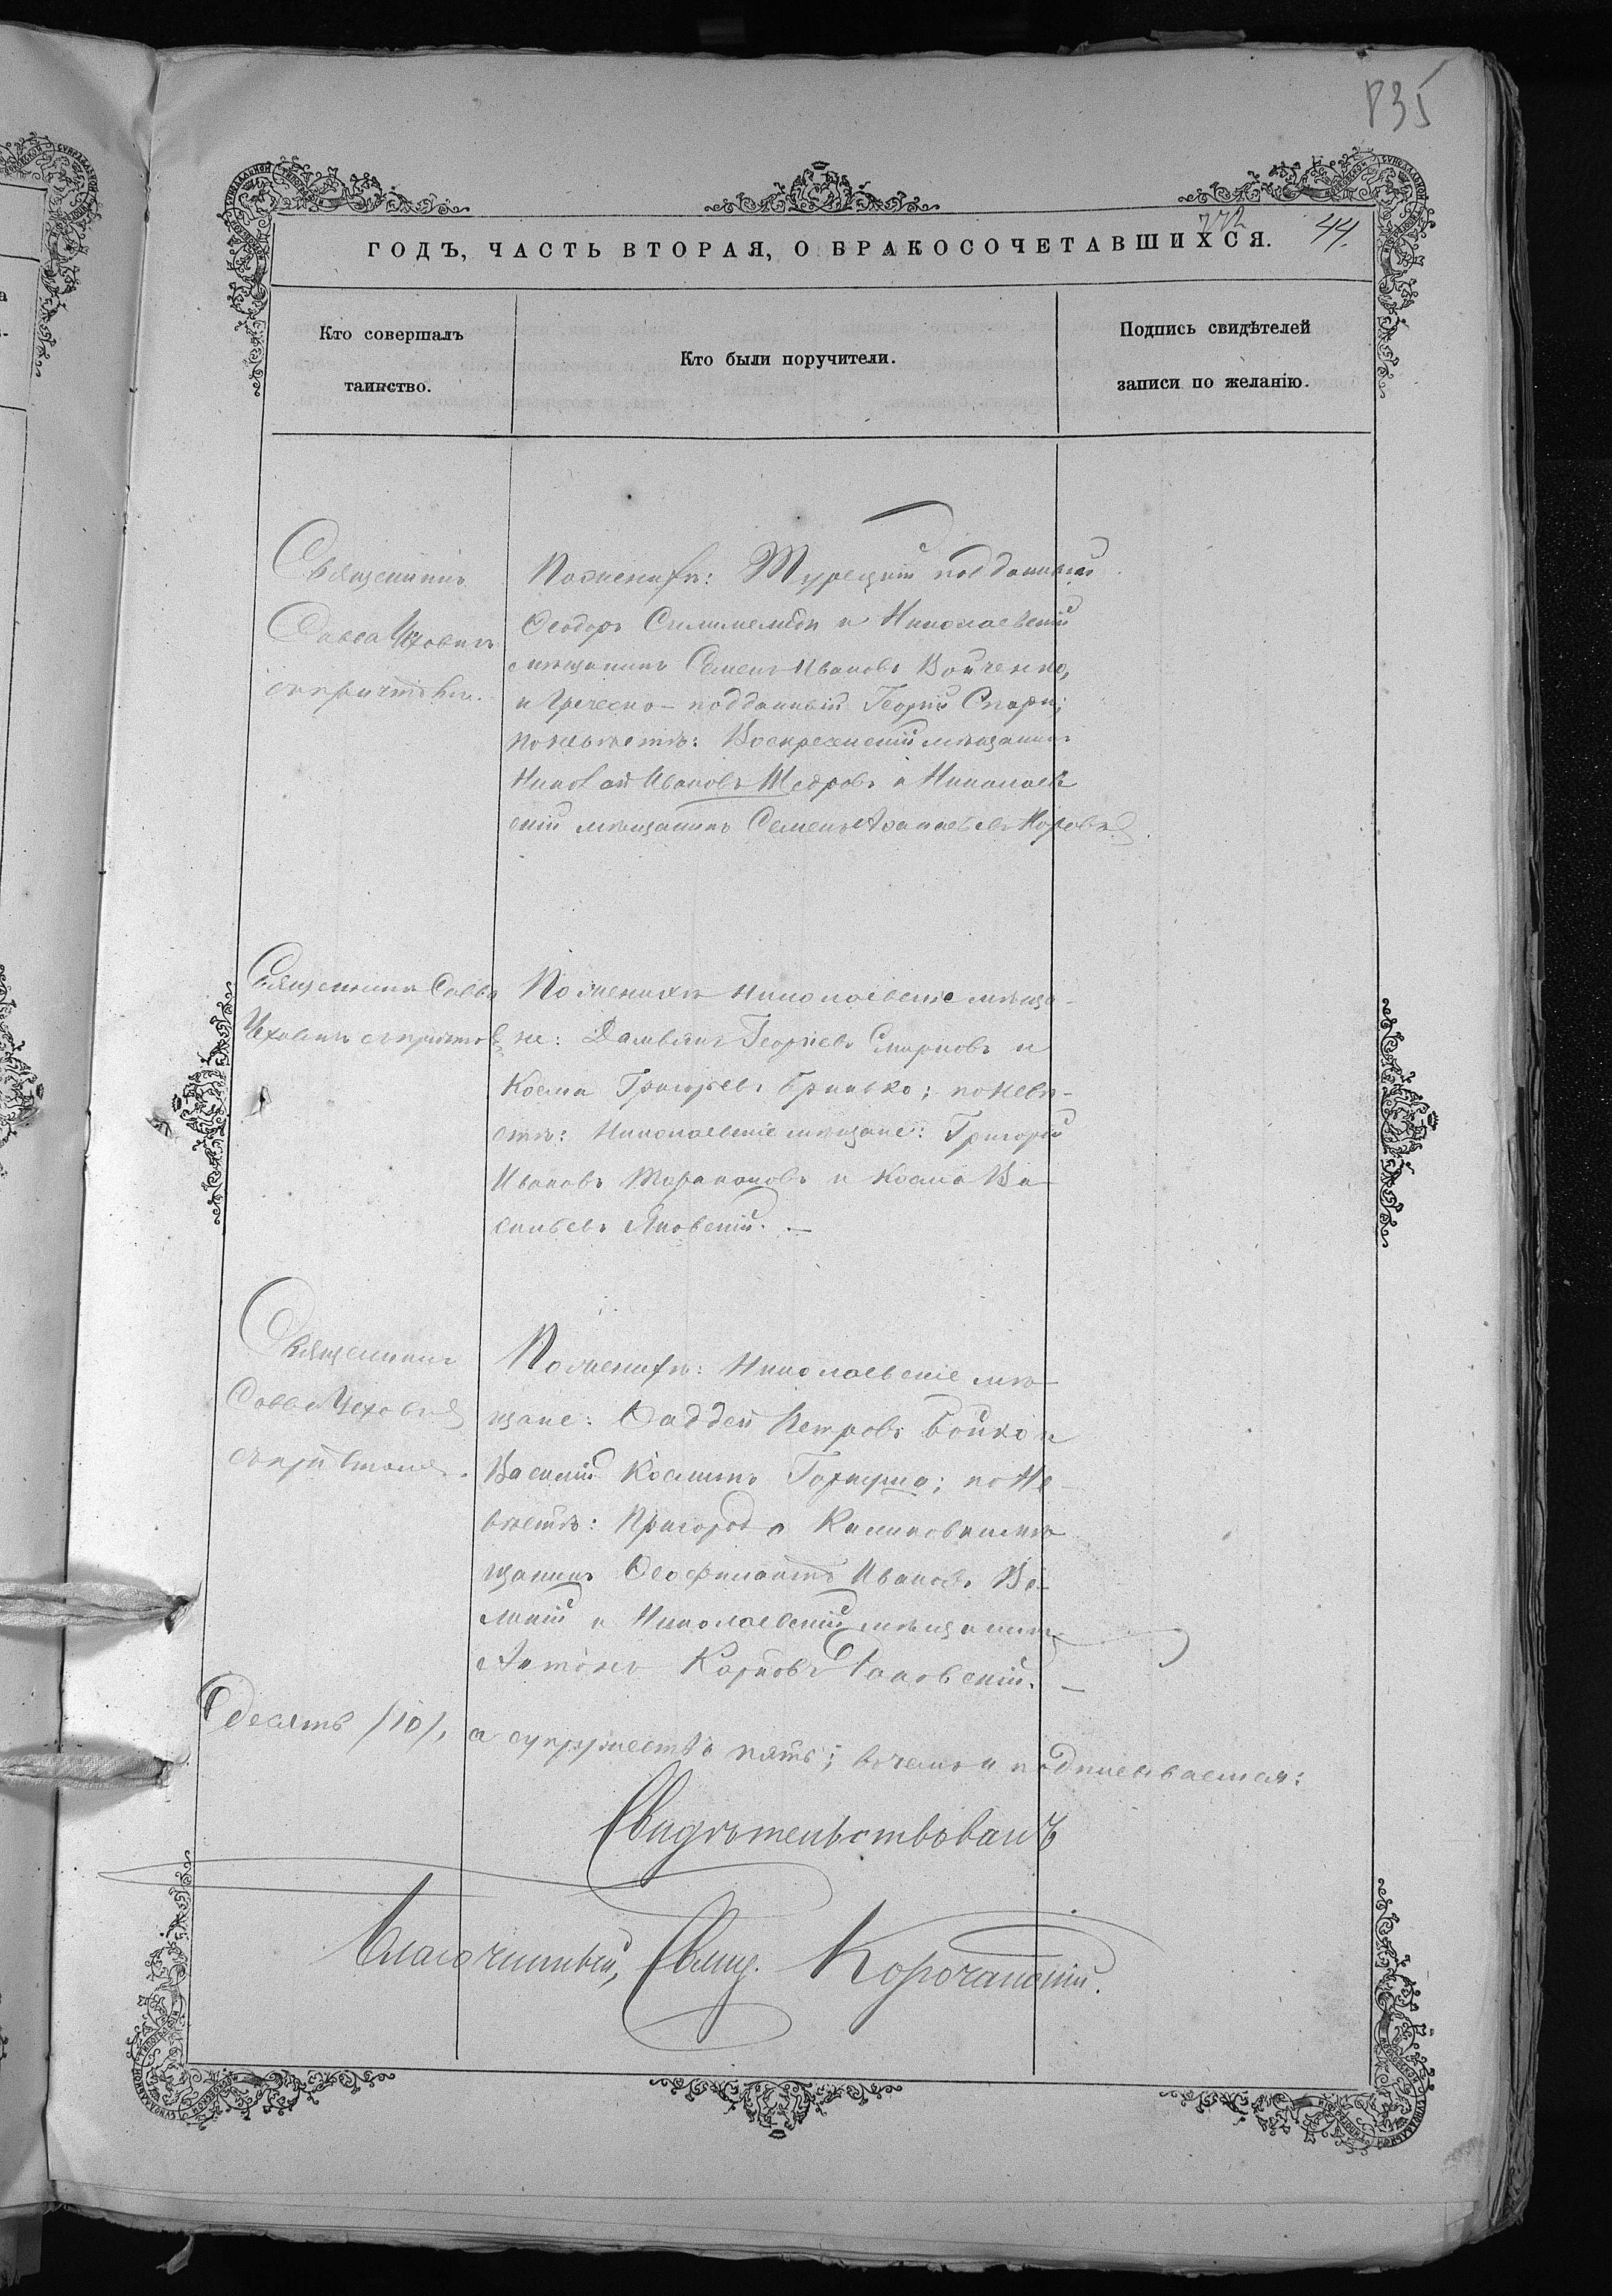 835
772
44.
ГОДЪ, ЧАСТЬ ВТОРАЯ, О БРАКОСОЧЕТАВШИХСЯ.
Кто совершалъ
таинство.
Кто были поручители.
Подпись свидѣтелей
записи по желанію.
Священникъ
Савва Чехович
съ причтомъ.
По женихѣ: Турецкій подданный
Ѳеодоръ и Николаевскій
мѣщанинъ Семенъ Ивановъ Войченко,
и Греческо-подданный Георгій
по невѣстѣ: Воскресенскій мѣщанинъ
Николай Ивановъ Щедровъ и Николаев
скій мѣщанинъ Семенъ
Священникъ Савва
Чехович съ причтомъ
По женихѣ Николаевскіе мѣща-
не: Дамьянъ Георгіевъ Смирновъ и
Косма Григорьевъ Гринько; по невѣ-
стѣ: Николаевскіе мѣщане: Григорій
Ивановъ Таракановъ и Косма Ва-
сильевъ Яновскій. —
Священникъ
Савва Чехович
съ причтомъ.
По женихѣ: Николаевскіе мѣ-
щане: Ѳаддей Петровъ Бойко и
Василій Косминъ по не-
вѣстѣ: Пригорода мѣ-
щанинъ Ѳеофилактъ Ивановъ Ве-
ликій и Николаевскій мѣщанинъ
Антонъ Карповъ
десять /10/, а супружествъ пять; въ чемъ и подписываемся:
Свидѣтельствовалъ
Благочинный, Свящ. Корочанскій.